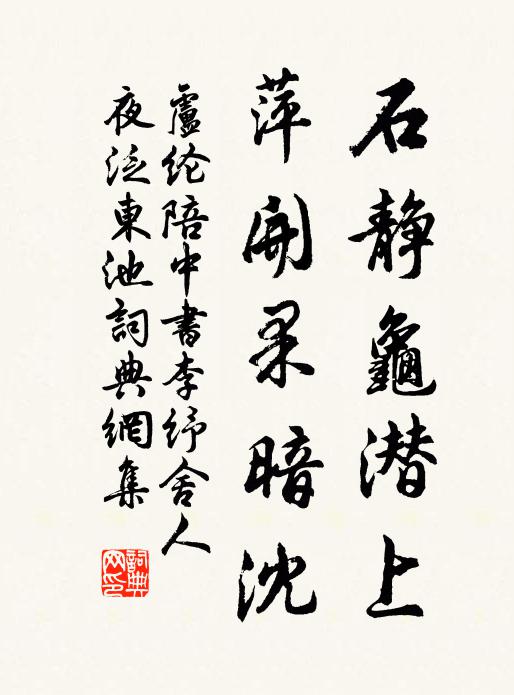 石静龜潜上
萍開果暗沈
盧纶陪中書李纾舍人
夜泛東池詞典網集
詞典网印